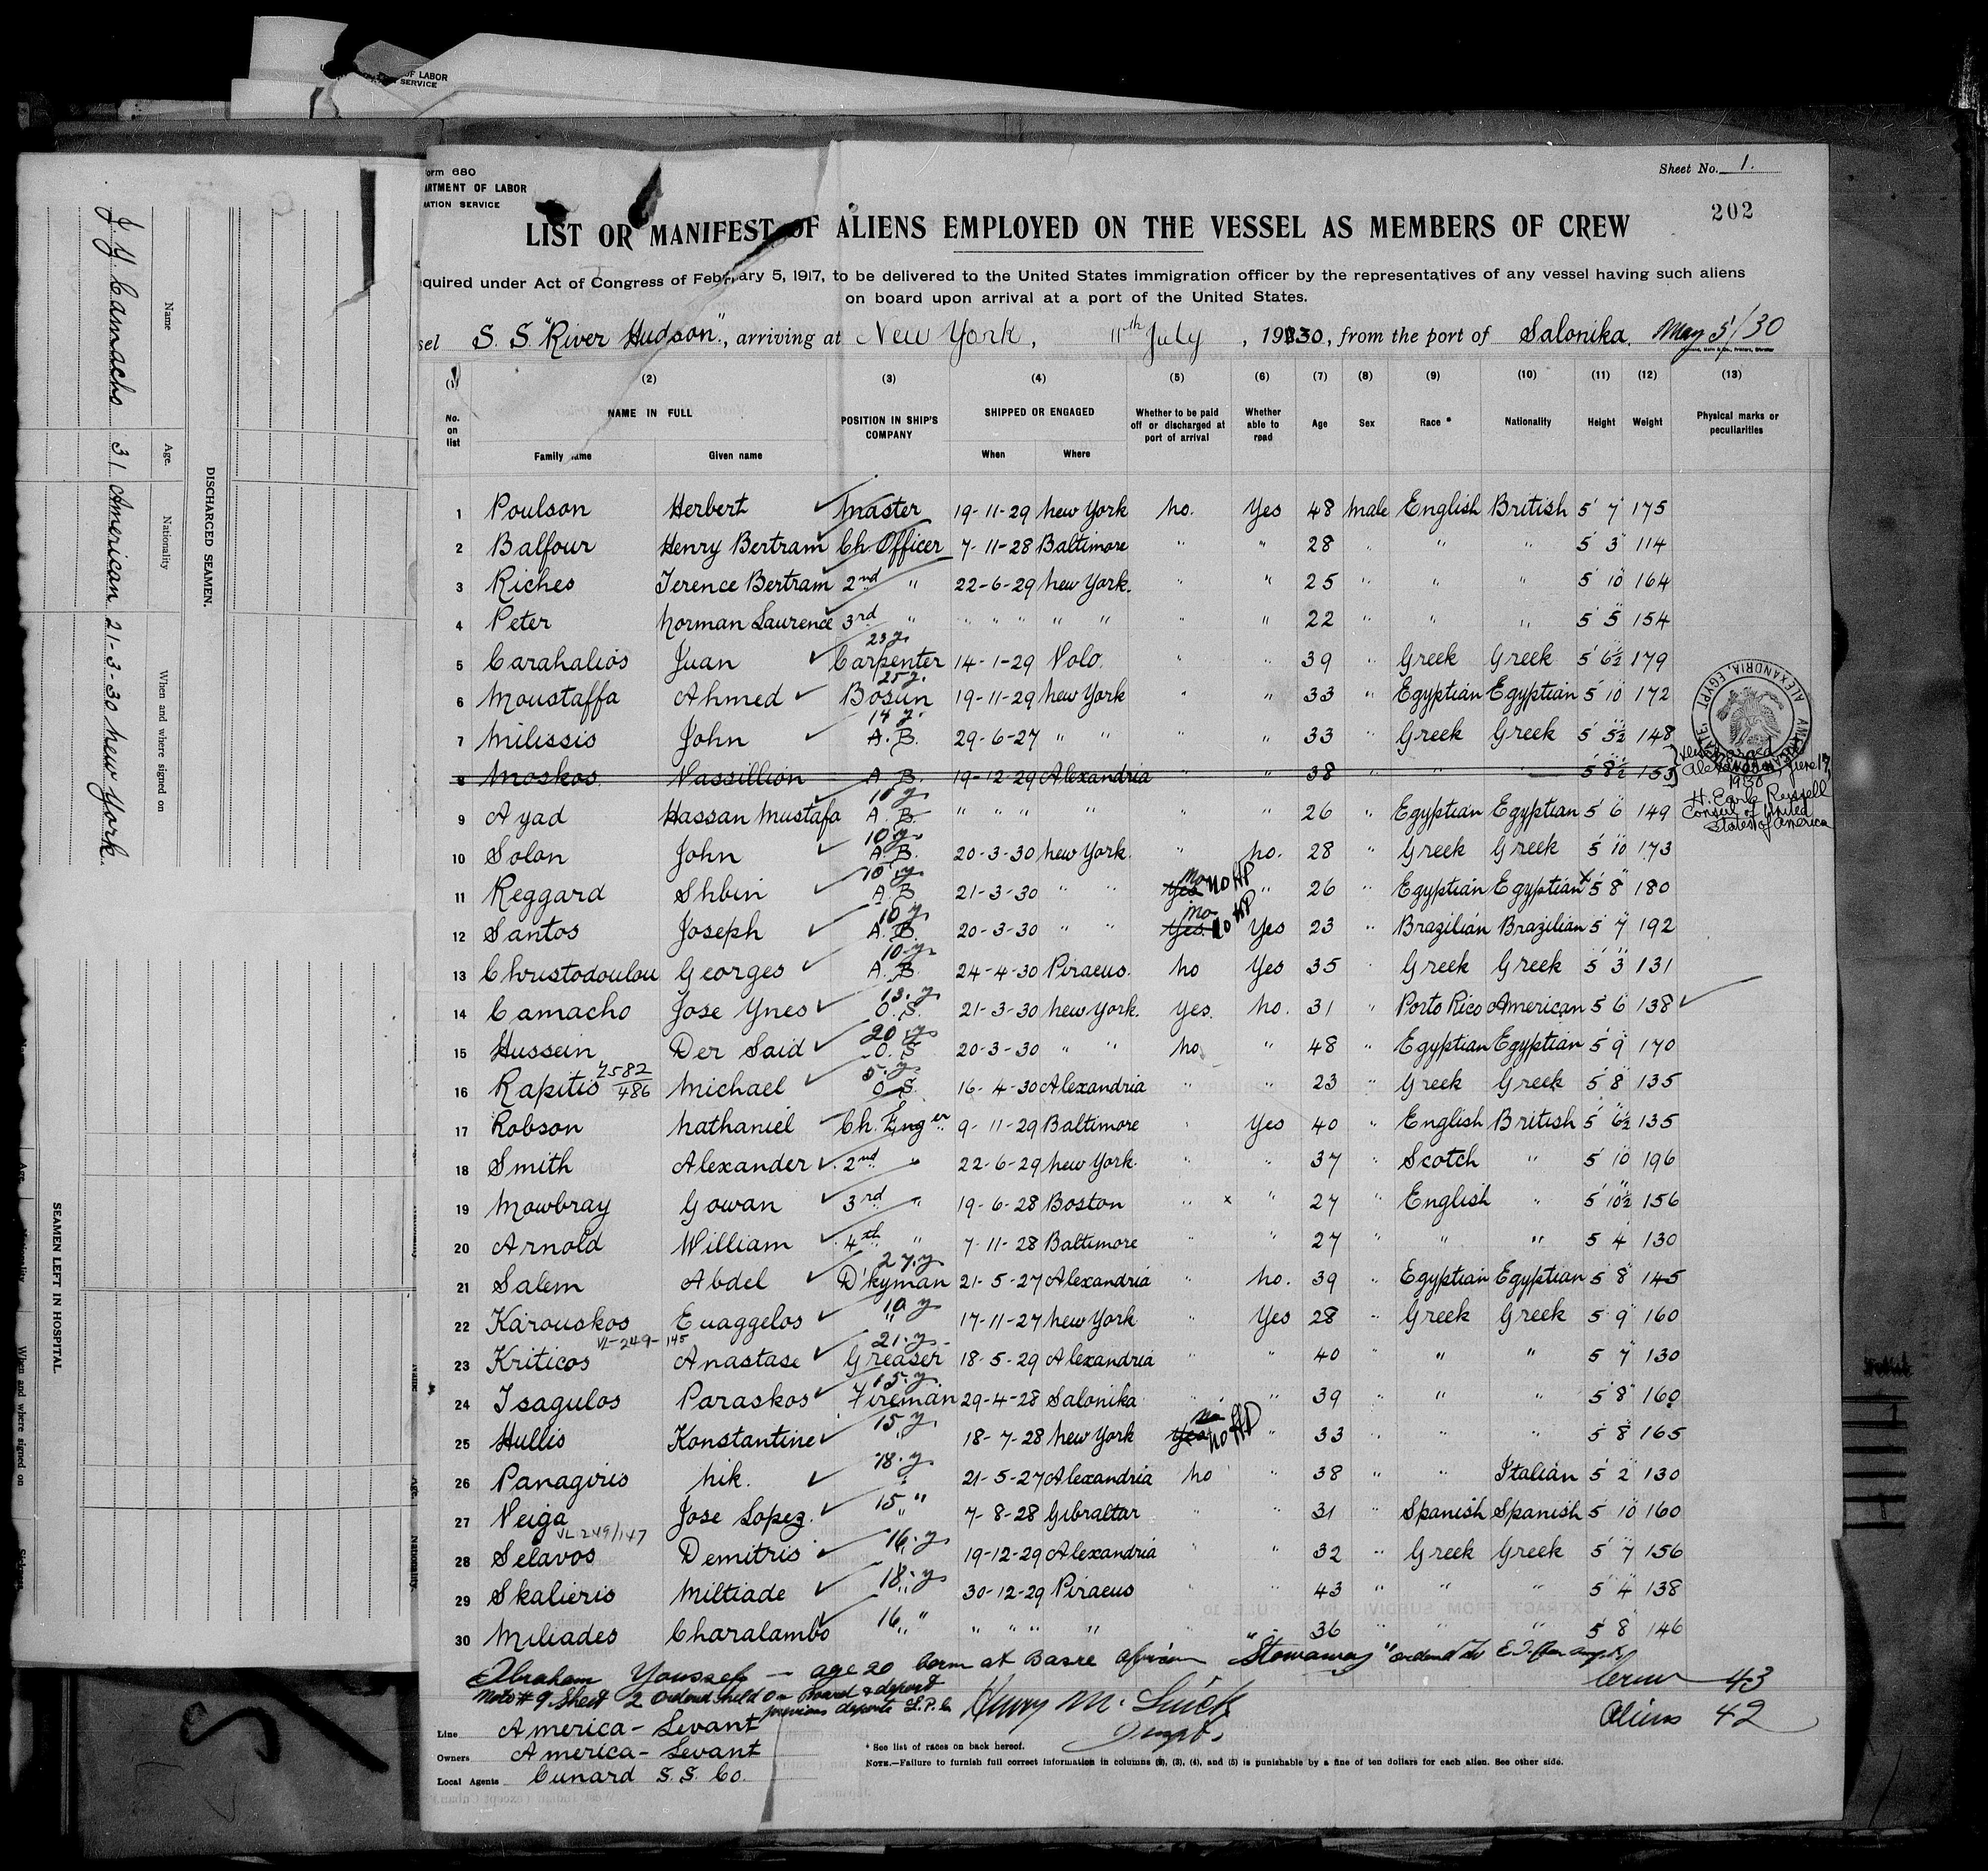 OF LABOR
SERVICE
DISCHARGED SEAMEN.
Name Age. Nationality When and where signed on
J. Y. Camacho 31 American 21-3-30 New York.
SEAMEN LEFT IN HOSPITAL
Age Nationality When and where signed on
Form 680
ARTMENT OF LABOR
RATION SERVICE
Sheet No. 1.
202
LIST OR MANIFEST OF ALIENS EMPLOYED ON THE VESSEL AS MEMBERS OF CREW
quired under Act of Congress of February 5, 1917, to be delivered to the United States immigration officer by the representatives of any vessel having such aliens
on board upon arrival at a port of the United States.
sel S. S. "River Hudson", arriving at New York, 11th July, 1930, from the port of Salonika. May 5/30
(1) (2) (3) (4) (5) (6) (7) (8) (9) (10) (11) (12) (13)
No. on list NAME IN FULL Family name Given name POSITION IN SHIP'S COMPANY SHIPPED OR ENGAGED When Where Whether to be paid off or discharged at port of arrival Whether able to read Age Sex Race * Nationality Height Weight Physical marks or peculiarities
1 Poulson Herbert Master 19-11-29 New York No. Yes 48 Male English British 5' 7" 175
2 Balfour Henry Bertram Ch. Officer 7-11-28 Baltimore " " 28 " " " 5' 3" 114
3 Riches Terence Bertram 2nd " 22-6-29 New York. " " 25 " " " 5' 10" 164
4 Peter Norman Laurence 3rd " " " " " " " " 22 " " " 5' 5" 154
23 y.
5 Carahalios Juan Carpenter 14-1-29 Volo. " " 39 " Greek Greek 5' 6½" 179
25 y.
6 Moustaffa Ahmed Bosun 19-11-29 New York " " 33 " Egyptian Egyptian 5' 10" 172
14 y.
7 Milissis John A.B. 29-6-27 " " " " 33 " Greek Greek 5' 5½" 148
8 Moskos Vassillion A.B. 19-12-29 Alexandria " " 38 " " " 5' 8½" 153
Alexandria, June 17, 1930
H. Earle Russell
Consul of United States of America
ALEXANDRIA, EGYPT
10 y
9 Ayad Hassan Mustafa A.B. " " " " " " 26 " Egyptian Egyptian 5' 6" 149
10 y
10 Solon John A.B. 20-3-30 New York. " No. 28 " Greek Greek 5' 10" 173
10 y
11 Reggard Shbin A.B 21-3-30 " " Yes No no HP " 26 " Egyptian Egyptian 5' 8" 180
10 y
12 Santos Joseph A.B. 20-3-30 " " Yes No no HP Yes 23 " Brazilian Brazilian 5' 7" 192
10 y
13 Christodoulou Georges A.B. 24-4-30 Piraeus. No Yes 35 " Greek Greek 5' 3" 131
13 y
14 Camacho Jose Ynes O.S. 21-3-30 New York. Yes. No. 31 " Porto Rico American 5' 6" 138
20 y
15 Hussein Der Said O.S 20-3-30 " " No " 48 " Egyptian Egyptian 5' 9" 170
7582/486
5 y
16 Rapitis Michael O.S. 16-4-30 Alexandria " " 23 " Greek Greek 5' 8" 135
17 Robson Nathaniel Ch. Enger 9-11-29 Baltimore " Yes 40 " English British 5' 6½" 135
18 Smith Alexander 2nd " 22-6-29 New York. " " 37 " Scotch " 5' 10" 196
19 Mowbray Gowan 3rd " 19-6-28 Boston " x " 27 " English " 5' 10½" 156
20 Arnold William 4th " 7-11-28 Baltimore " " 27 " " " 5' 4" 130
27 y
21 Salem Abdel D'kyman 21-5-27 Alexandria " No. 39 " Egyptian Egyptian 5' 8" 145
10 y
22 Karouskos Euaggelos " 17-11-27 New York " Yes 28 " Greek Greek 5' 9" 160
VL-249-145
21 y
23 Kriticos Anastase Greaser 18-5-29 Alexandria " " 40 " " " 5' 7" 130
15 y
24 Tsagulos Paraskos Fireman 29-4-28 Salonika " " 39 " " " 5' 8" 160
15 y
25 Hullis Konstantine " 18-7-28 New York Yes No no HP " 33 " " " 5' 8" 165
18 y
26 Panagiris Nik. " 21-5-27 Alexandria No " 38 " " Italian 5' 2" 130
15 "
27 Veiga Jose Lopez. " 7-8-28 Gibraltar " " 31 " Spanish Spanish 5' 10" 160
VL 249/147
16 y
28 Selavos Demitris " 19-12-29 Alexandria " " 32 " Greek Greek 5' 7" 156
18 y
29 Skalieris Miltiade " 30-12-29 Piraeus " " 43 " " " 5' 4" 138
16 "
30 Miliades Charalambo " " " " " " " 36 " " " 5' 8" 146
Abraham Youssef — age 20 born at "Stowaway" ordered to
Note # 9 Sheet 2 ordered held on board & deport
previous deports
Crew 43
Aliens 42
Line America-Levant
Owners America-Levant
Local Agents Cunard S.S. Co.
* See list of races on back hereof.
NOTE.—Failure to furnish full correct information in columns (2), (3), (4), and (5) is punishable by a fine of ten dollars for each alien. See other side.